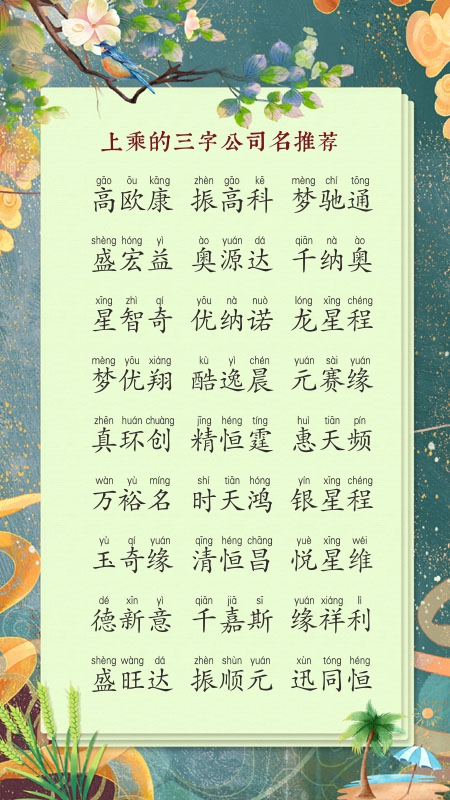 上乘的三字公司名推荐
gāo ōu kāng zhèn gāo kē mèng chí tōng
高欧康 振高科 梦驰通
shèng hóng yì ào yuán dá qiān nà ào
盛宏益 奥源达 千纳奥
xīng zhì qí yōu nà nuò lóng xīng chéng
星智奇 优纳诺 龙星程
mèng yōu xiáng kù yì chén yuán sài yuán
梦优翔 酷逸晨 元赛缘
zhēn huán chuàng jīng héng tíng huì tiān pín
真环创 精恒霆 惠天频
wàn yù míng shí tiān hóng yín xīng chéng
万裕名 时天鸿 银星程
yù qí yuán qīng héng chāng yuè xīng wéi
玉奇缘 清恒昌 悦星维
dé xīn yì qiān jiā sī yuán xiáng lì
德新意 千嘉斯 缘祥利
shèng wàng dá zhèn shùn yuán xùn tóng héng
盛旺达 振顺元 迅同恒